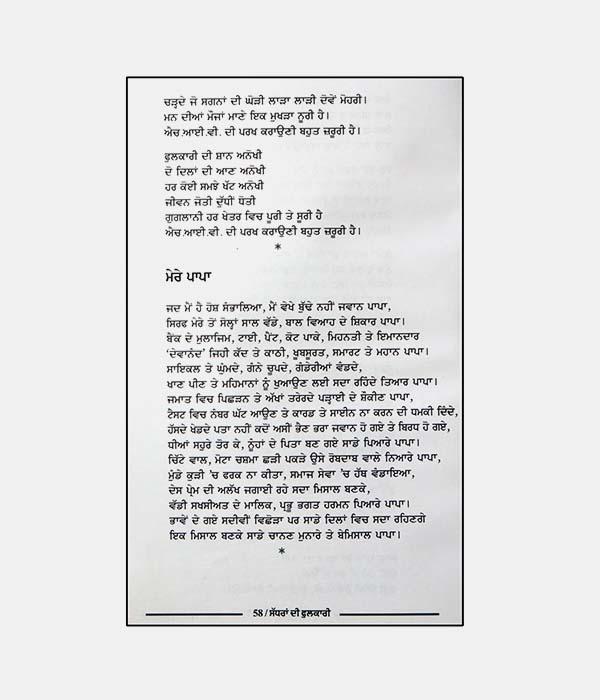 ਚੜ੍ਹਦੇ ਜੋ ਸਗਨਾਂ ਦੀ ਘੋੜੀ ਲਾੜਾ ਲਾੜੀ ਦੋਵੇਂ ਮੋਹਰੀ।
ਮਨ ਦੀਆਂ ਮੌਜਾਂ ਮਾਣੇ ਇਕ ਮੁਖੜਾ ਨੂਰੀ ਹੈ।
ਐਚ.ਆਈ.ਵੀ. ਦੀ ਪਰਖ ਕਰਾਉਣੀ ਬਹੁਤ ਜ਼ਰੂਰੀ ਹੈ।
ਫੁਲਕਾਰੀ ਦੀ ਸ਼ਾਨ ਅਨੋਖੀ
ਦੋ ਦਿਲਾਂ ਦੀ ਆਣ ਅਨੋਖੀ
ਹਰ ਕੋਈ ਸਮਝੇ ਖੱਟ ਅਨੋਖੀ
ਜੀਵਨ ਜੋਤੀ ਦੁੱਧੀਂ ਧੋਤੀ
ਗੁਗਲਾਨੀ ਹਰ ਖੇਤਰ ਵਿਚ ਪੂਰੀ ਤੇ ਸੂਰੀ ਹੈ
ਐਚ.ਆਈ.ਵੀ. ਦੀ ਪਰਖ ਕਰਾਉਣੀ ਬਹੁਤ ਜ਼ਰੂਰੀ ਹੈ।
*
ਮੇਰੇ ਪਾਪਾ
ਜਦ ਮੈਂ ਹੈ ਹੋਸ਼ ਸੰਭਾਲਿਆ, ਮੈਂ ਵੇਖੇ ਬੁੱਢੇ ਨਹੀਂ ਜਵਾਨ ਪਾਪਾ,
ਸਿਰਫ ਮੇਰੇ ਤੋਂ ਸੋਲ੍ਹਾਂ ਸਾਲ ਵੱਡੇ, ਬਾਲ ਵਿਆਹ ਦੇ ਸ਼ਿਕਾਰ ਪਾਪਾ।
ਬੈਂਕ ਦੇ ਮੁਲਾਜਿਮ, ਟਾਈ, ਪੈਂਟ, ਕੋਟ ਪਾਕੇ, ਮਿਹਨਤੀ ਤੇ ਇਮਾਨਦਾਰ
'ਦੇਵਾਨੰਦ' ਜਿਹੀ ਕੱਦ ਤੇ ਕਾਠੀ, ਖੂਬਸੂਰਤ, ਸਮਾਰਟ ਤੇ ਮਹਾਨ ਪਾਪਾ।
ਸਾਇਕਲ ਤੇ ਘੁੰਮਦੇ, ਗੰਨੇ ਚੂਪਦੇ, ਗੰਡੇਰੀਆਂ ਵੰਡਦੇ,
ਖਾਣ ਪੀਣ ਤੇ ਮਹਿਮਾਨਾਂ ਨੂੰ ਖੁਆਉਣ ਲਈ ਸਦਾ ਰਹਿੰਦੇ ਤਿਆਰ ਪਾਪਾ।
ਜਮਾਤ ਵਿਚ ਪਿਛੜਨ ਤੇ ਅੱਖਾਂ ਤਰੇਰਦੇ ਪੜ੍ਹਾਈ ਦੇ ਸ਼ੌਕੀਣ ਪਾਪਾ,
ਟੈਸਟ ਵਿਚ ਨੰਬਰ ਘੱਟ ਆਉਣ ਤੇ ਕਾਰਡ ਤੇ ਸਾਈਨ ਨਾ ਕਰਨ ਦੀ ਧਮਕੀ ਦਿੰਦੇ,
ਹੱਸਦੇ ਖੇਡਦੇ ਪਤਾ ਨਹੀਂ ਕਦੋਂ ਅਸੀਂ ਭੈਣ ਭਰਾ ਜਵਾਨ ਹੋ ਗਏ ਤੇ ਬਿਰਧ ਹੋ ਗਏ,
ਧੀਆਂ ਸਹੁਰੇ ਤੋਰ ਕੇ, ਨੂੰਹਾਂ ਦੇ ਪਿਤਾ ਬਣ ਗਏ ਸਾਡੇ ਪਿਆਰੇ ਪਾਪਾ।
ਚਿੱਟੇ ਵਾਲ, ਮੋਟਾ ਚਸ਼ਮਾ ਛੜੀ ਪਕੜੇ ਉਸੇ ਰੋਬਦਾਬ ਵਾਲੇ ਨਿਆਰੇ ਪਾਪਾ,
ਮੁੰਡੇ ਕੁੜੀ 'ਚ ਫਰਕ ਨਾ ਕੀਤਾ, ਸਮਾਜ ਸੇਵਾ 'ਚ ਹੱਥ ਵੰਡਾਇਆ,
ਦੇਸ ਪ੍ਰੇਮ ਦੀ ਅਲੱਖ ਜਗਾਈ ਰਹੇ ਸਦਾ ਮਿਸਾਲ ਬਣਕੇ,
ਵੱਡੀ ਸਖਸੀਅਤ ਦੇ ਮਾਲਿਕ, ਪ੍ਰਭੂ ਭਗਤ ਹਰਮਨ ਪਿਆਰੇ ਪਾਪਾ।
ਭਾਵੇਂ ਦੇ ਗਏ ਸਦੀਵੀਂ ਵਿਛੋੜਾ ਪਰ ਸਾਡੇ ਦਿਲਾਂ ਵਿਚ ਸਦਾ ਰਹਿਣਗੇ
ਇਕ ਮਿਸਾਲ ਬਣਕੇ ਸਾਡੇ ਚਾਨਣ ਮੁਨਾਰੇ ਤੇ ਬੇਮਿਸਾਲ ਪਾਪਾ।
*
58/ਸੱਧਰਾਂ ਦੀ ਫੁਲਕਾਰੀ